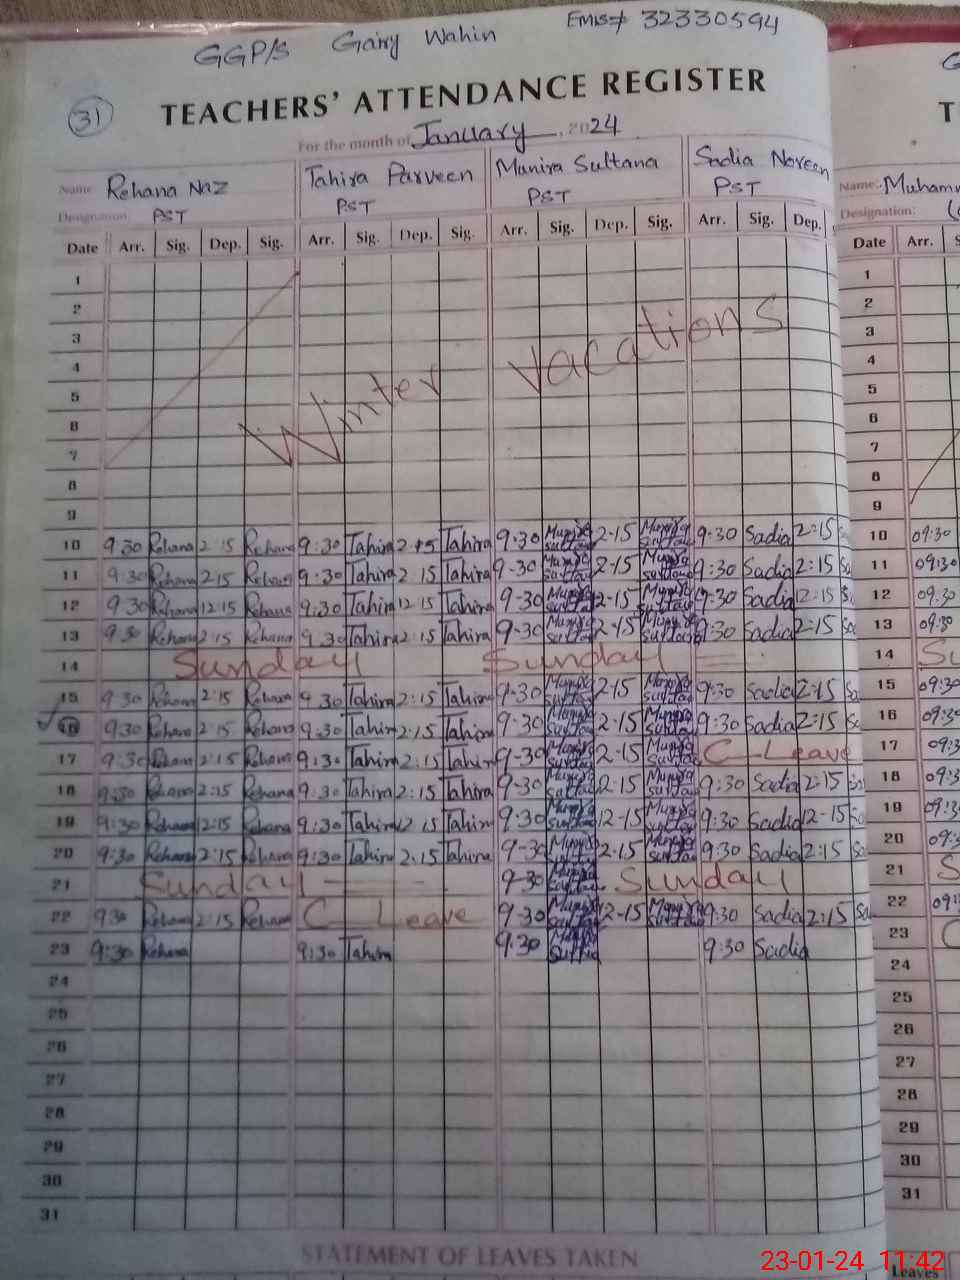 GGP/S Gairy Wahin EMIS# 32330594
31
TEACHERS' ATTENDANCE REGISTER
For the month of January, 2024
Name Rehana Naz Tahira Parveen Munira Sultana Sadia Noreen Name:
Designation PST PST PST PST Designation:
Date Arr. Sig. Dep. Sig. Arr. Sig. Dep. Sig. Arr. Sig. Dep. Sig. Arr. Sig. Dep. Date Arr.
1 1
2 2
3 Winter Vacations 3
4 4
5 5
6 6
7 7
8 8
9 9
10 9:30 Rehana 2:15 Rehana 9:30 Tahira 2:15 Tahira 9-30 Munira Sultana 2-15 Munira Sultana 9:30 Sadia 2:15 10 09:30
11 9:30 Rehana 2:15 Rehana 9:30 Tahira 2:15 Tahira 9-30 Munira Sultana 2-15 Munira Sultana 9:30 Sadia 2:15 11 09:30
12 9:30 Rehana 12:15 Rehana 9:30 Tahira 12:15 Tahira 9-30 Munira Sultana 12-15 Munira Sultana 9:30 Sadia 12:15 12 09:30
13 9:30 Rehana 2:15 Rehana 9:30 Tahira 2:15 Tahira 9-30 Munira Sultana 2-15 Munira Sultana 9:30 Sadia 2:15 13 09:30
14 Sunday Sunday 14
15 9:30 Rehana 2:15 Rehana 9:30 Tahira 2:15 Tahira 9-30 Munira Sultana 2-15 Munira Sultana 9:30 Sadia 2:15 15 09:30
16 9:30 Rehana 2:15 Rehana 9:30 Tahira 2:15 Tahira 9-30 Munira Sultana 2-15 Munira Sultana 9:30 Sadia 2:15 16 09:30
17 9:30 Rehana 2:15 Rehana 9:30 Tahira 2:15 Tahira 9-30 Munira Sultana 2-15 Munira Sultana C-Leave 17
18 9:30 Rehana 2:15 Rehana 9:30 Tahira 2:15 Tahira 9-30 Munira Sultana 2-15 Munira Sultana 9:30 Sadia 2:15 18
19 9:30 Rehana 12:15 Rehana 9:30 Tahira 12:15 Tahira 9-30 Munira Sultana 12-15 Munira Sultana 9:30 Sadia 12-15 19
20 9:30 Rehana 2:15 Rehana 9:30 Tahira 2:15 Tahira 9-30 Munira Sultana 2-15 Munira Sultana 9:30 Sadia 2:15 20
21 Sunday 9-30 Munira Sultana Sunday 21
22 9:30 Rehana 2:15 Rehana C-Leave 9-30 Munira Sultana 12-15 Munira Sultana 9:30 Sadia 2:15 22
23 9:30 Rehana 9:30 Tahira 9:30 Munira Sultana 9:30 Sadia 23
24 24
25 25
26 26
27 27
28 28
29 29
30 30
31 31
STATEMENT OF LEAVES TAKEN
Leaves
23-01-24 11:42